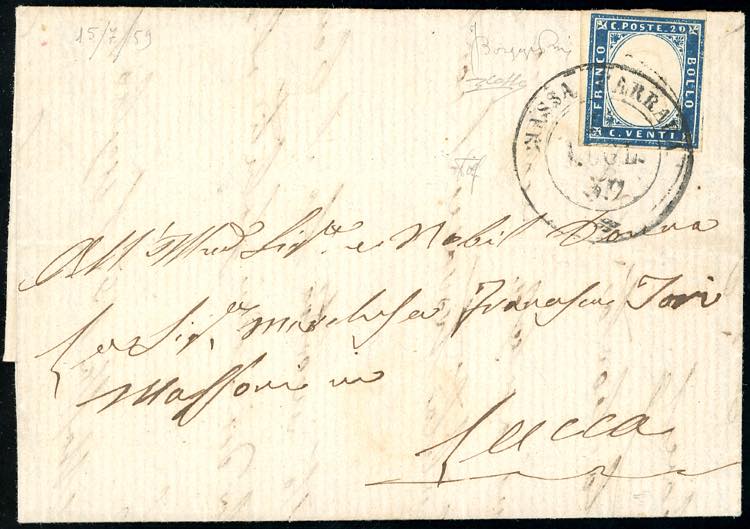 15/7/59
C. POSTE. 20
FRANCO
BOLLO
C. VENTI
MASSA CARRARA
LUGL.
59
All' Sig.ra e Nobil Donna
La Sig.ra Marchesa Francesca Tori
Massoni in
Lucca